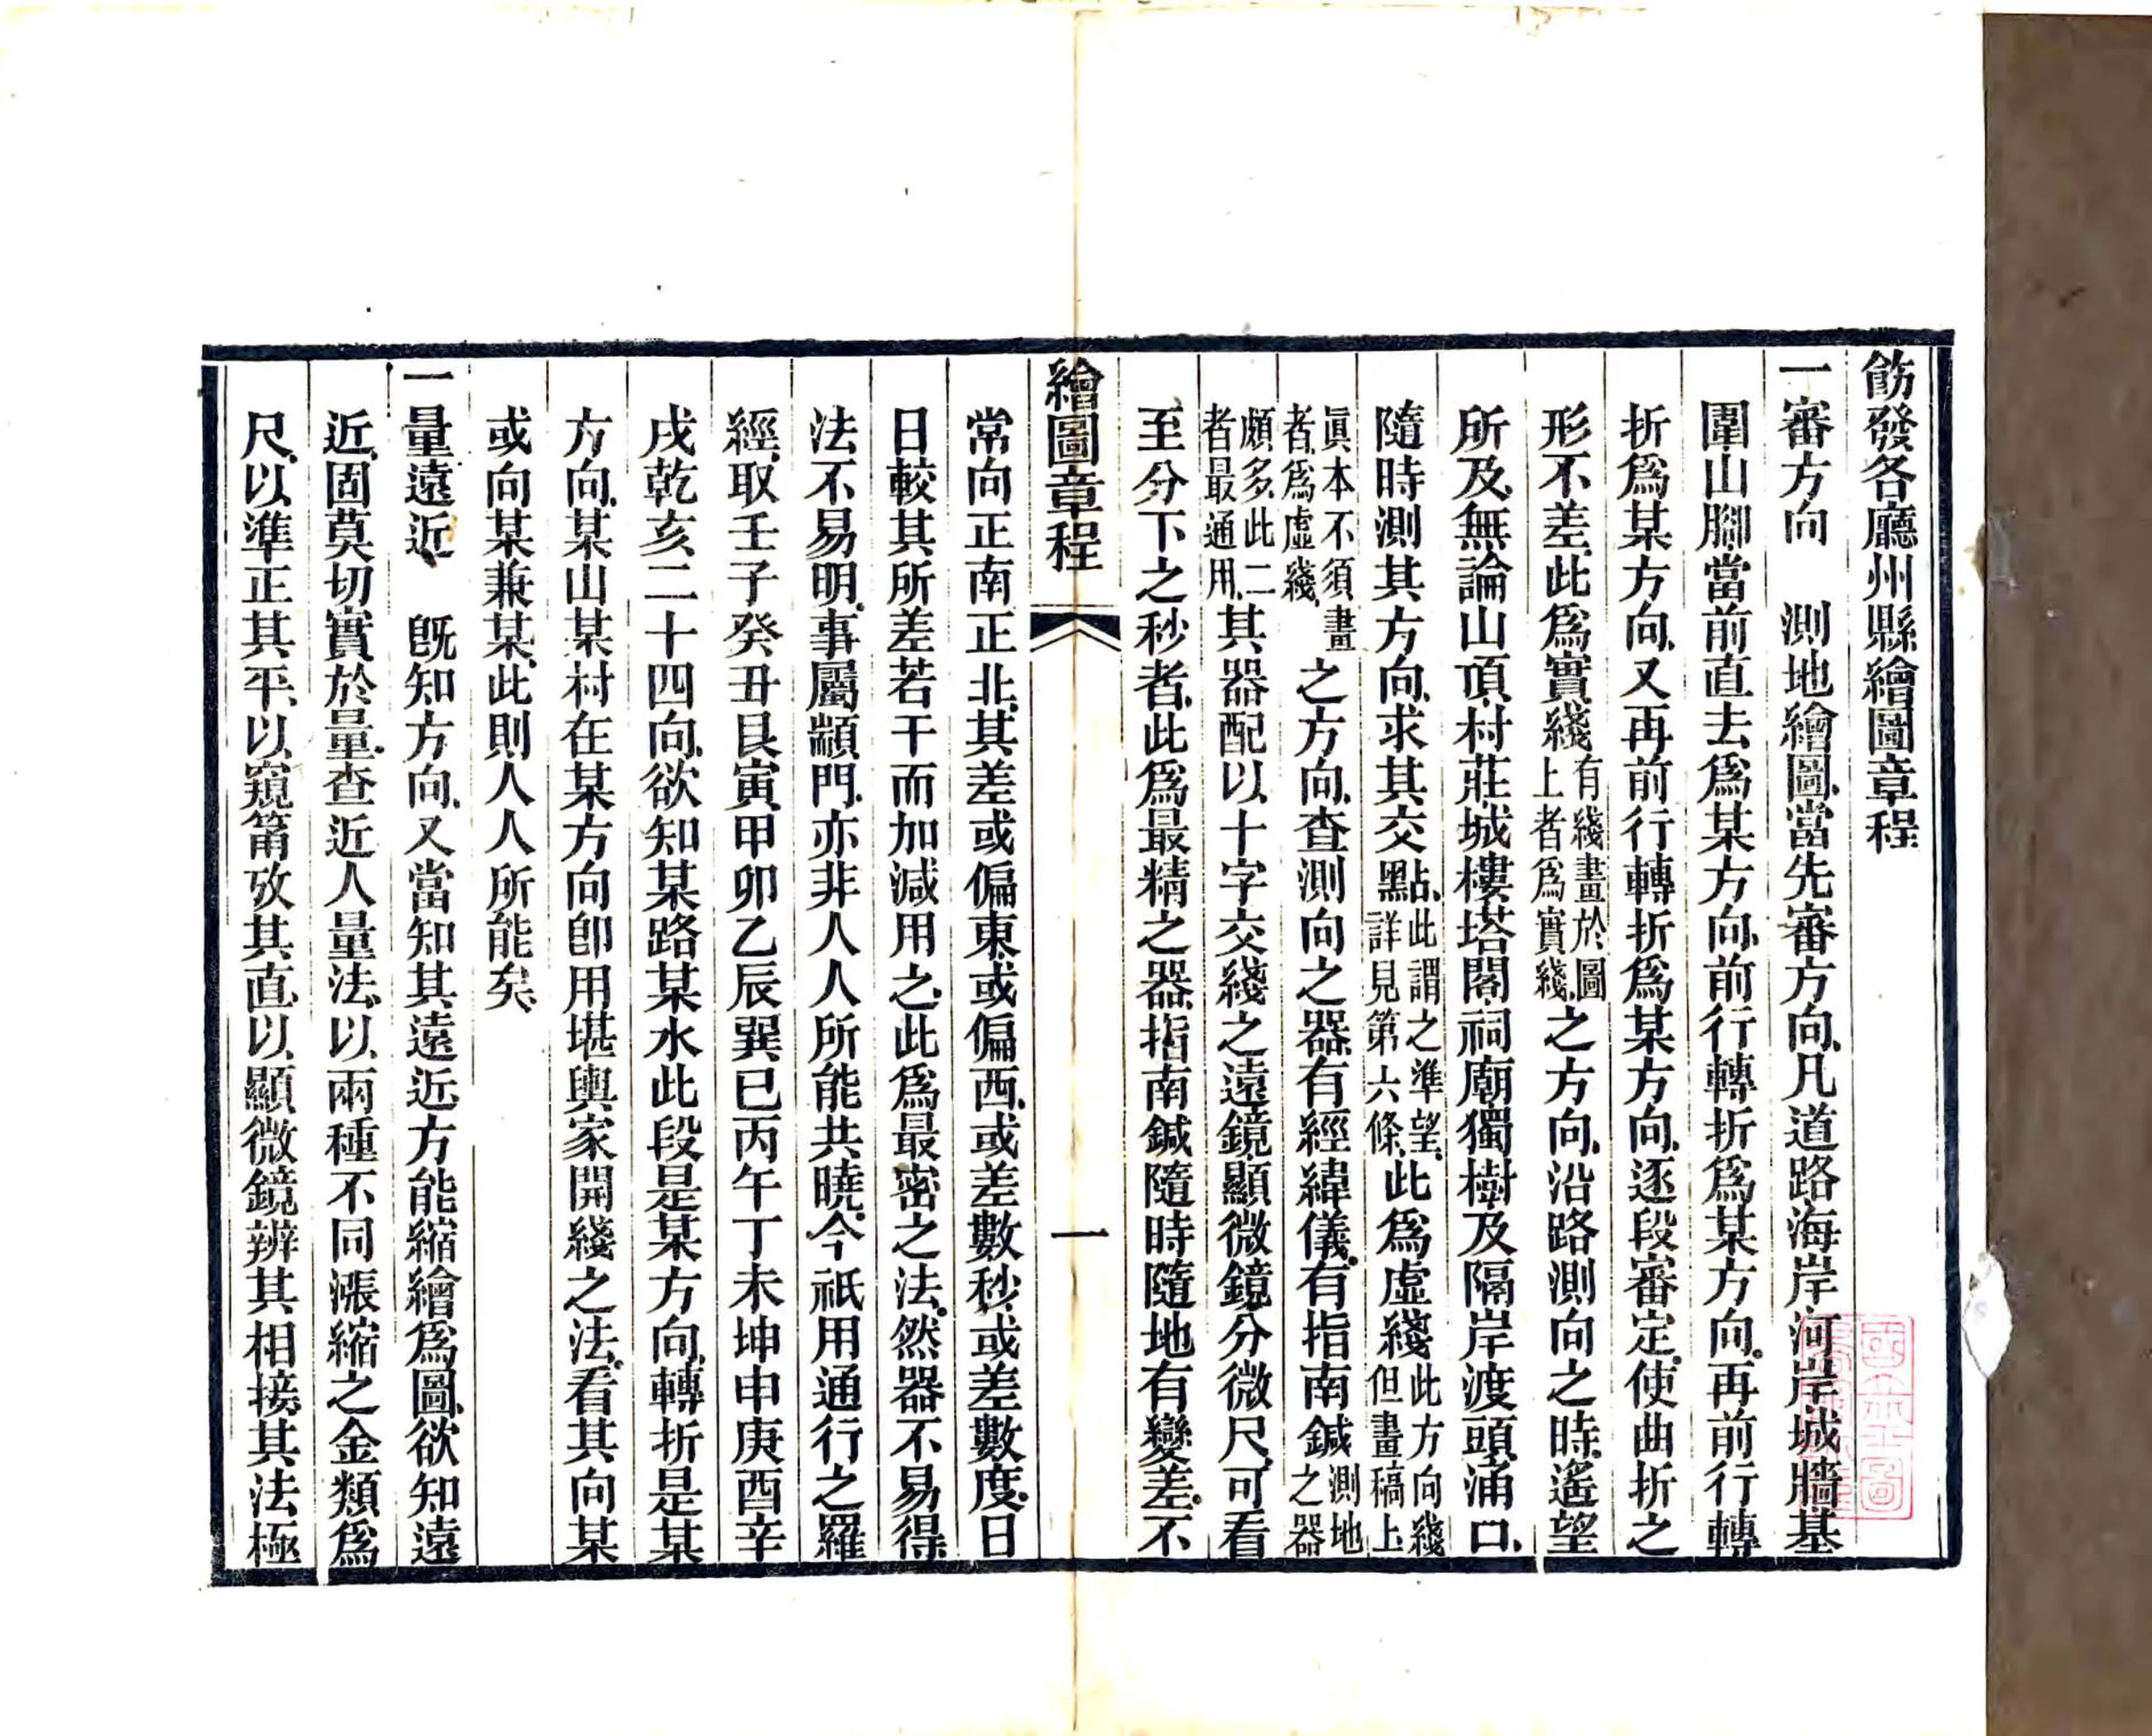 飭發各廳州縣繪圖章程
一審方向　測地繪圖當先審方向凡道路海岸河岸城牆基
圍山腳當前直去爲某方向前行轉折爲某方向再前行轉
折爲某方向又再前行轉折爲某方向逐段審定使曲折之
形不差此爲實綫有綫畫於圖上者爲實綫之方向沿路測向之時遙望
所及無論山頂村莊城樓塔閣祠廟獨樹及隔岸渡頭涌口
隨時測其方向求其交點此謂之準望詳見第六條此爲虛綫此方向綫但畫稿上
眞本不須畫者爲虛綫之方向查測向之器有經緯儀有指南鍼測地之器
頗多此二者最通用其器配以十字交綫之遠鏡顯微鏡分微尺可看
至分下之秒者此爲最精之器指南鍼隨時隨地有變差不
繪圖章程
一
常向正南正北其差或偏東或偏西或差數秒或差數度日
日較其所差若干而加減用之此爲最密之法然器不易得
法不易明事屬顓門亦非人人所能共曉今祇用通行之羅
經取壬子癸丑艮寅甲卯乙辰巽巳丙午丁未坤申庚酉辛
戌乾亥二十四向欲知某路某水此段是某方向轉折是某
方向某山某村在某方向卽用堪輿家開綫之法看其向某
或向某兼某此則人人所能矣
一量遠近　旣知方向又當知其遠近方能縮繪爲圖欲知遠
近固莫切實於量查近人量法以兩種不同漲縮之金類爲
尺以準正其平以窺筩攷其直以顯微鏡辨其相接其法極